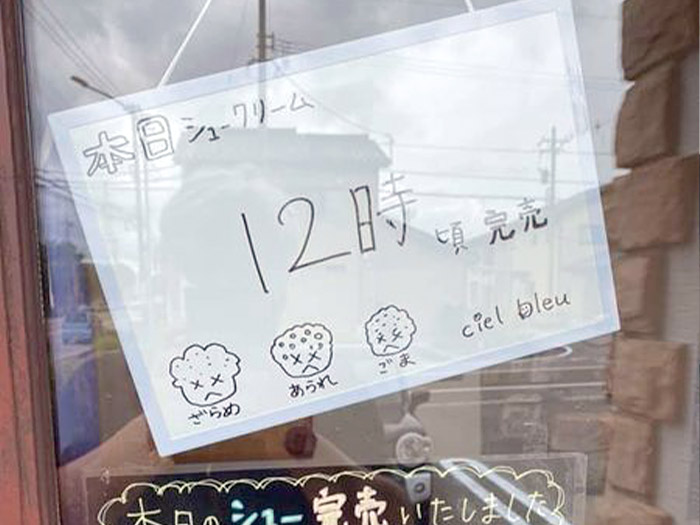 本日シュークリーム
12時頃完売
ciel bleu
ざらめ あられ ごま
本日のシュー完売いたしました